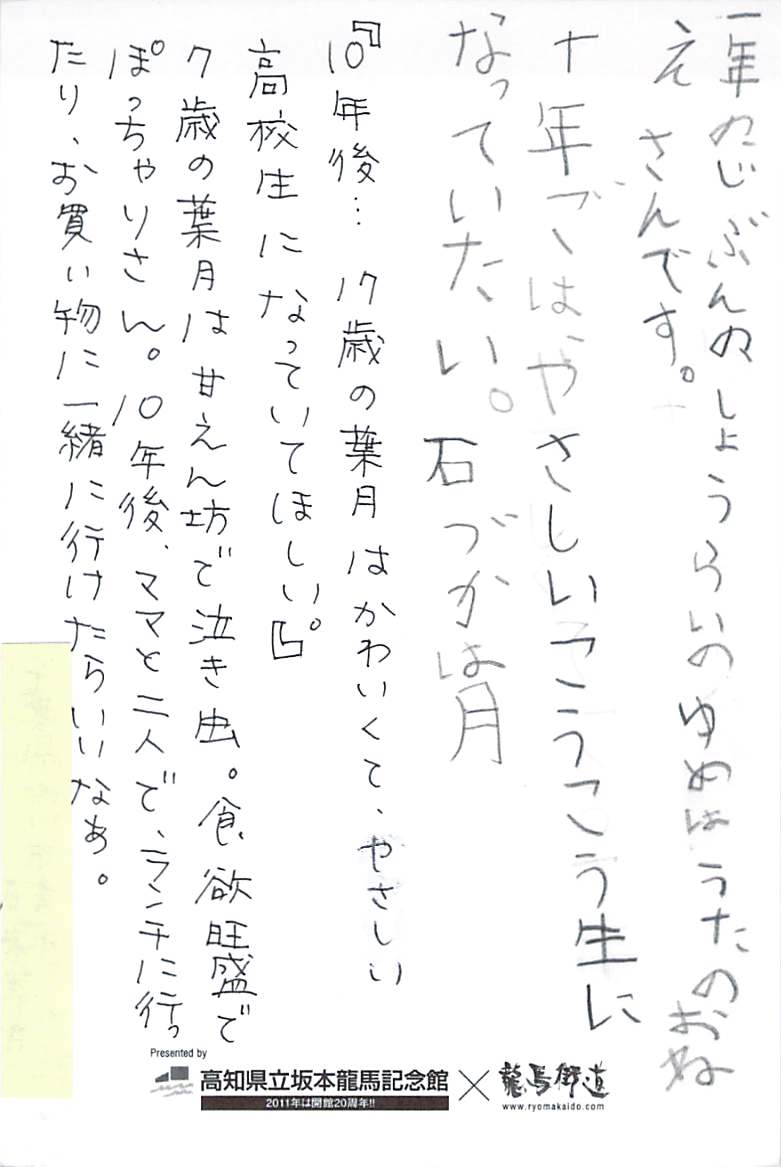 一年のじぶんのしょうらいのゆめはうたのおね
えさんです。
十年ごはやさしいこうこう生に
なっていたい。石づかは月
『10年後… 17歳の葉月はかわいくて、やさしい
高校生になっていてほしい。』
7歳の葉月は甘えん坊で泣き虫。食欲旺盛で
ぽっちゃりさん。10年後、ママと二人で、ランチに行っ
たり、お買い物に一緒に行けたらいいなぁ。
Presented by
高知県立坂本龍馬記念館 × 龍馬街道
2011年は開館20周年!!
www.ryomakaido.com